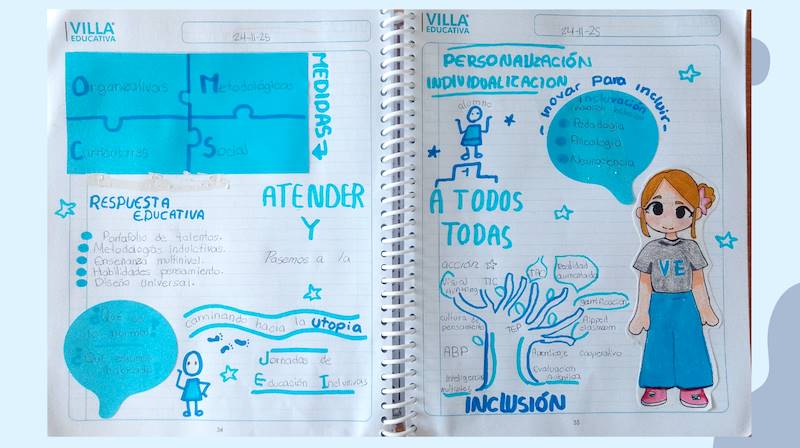 VILLA
EDUCATIVA
24-11-25
Organizativas
Metodológicas
Curriculares
Social
MEDIDAS
RESPUESTA
EDUCATIVA
Portafolio de talentos.
Metodologías inductivas.
Enseñanza multinivel.
Habilidades pensamiento.
Diseño Universal.
ATENDER
Y
Pasemos a la
¿Qué es
lo normal?
¿Qué
caminando hacia la utopia
Jornadas de
Educación Inclusivas
34
VILLA
EDUCATIVA
24-11-25
PERSONALIZACIÓN
INDIVIDUALIZACION
alumno
1
- innovar para incluir -
Incluvación
Pedadogía
Psicología
Neurociencia
A TODOS
TODAS
acción
Visual
thinking
TIC
TAC
Realidad
aumentada
gamificación
cultura
pensamiento
TEP
flipped
classroom
ABP
Aprendizaje cooperativo
Inteligencias
múltiples
Evaluación
Auténtica
INCLUSIÓN
VE
35